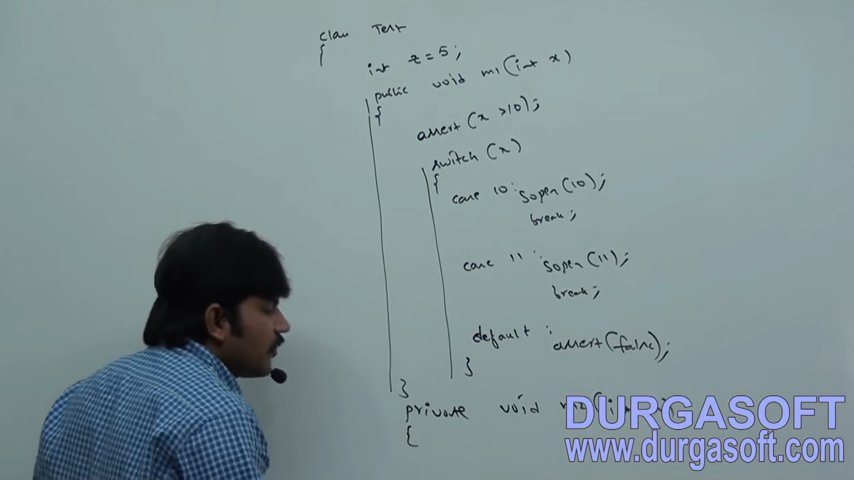 class Test
{
int z = 5;
public void m1(int x)
{
assert(x >10);
switch (x)
{
case 10: sopen(10);
break;
case 11: sopen(11);
break;
default: assert(false);
}
}
private void
{
DURGASOFT
www.durgasoft.com